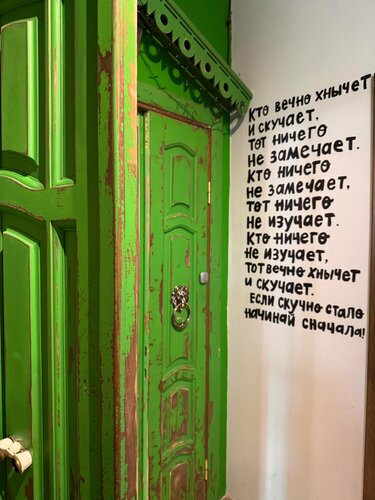 Кто вечно хнычет
и скучает,
тот ничего
не замечает.
Кто ничего
не замечает,
тот ничего
не изучает.
Кто ничего
не изучает,
тот вечно хнычет
и скучает.
Если скучно стало
начинай сначала!